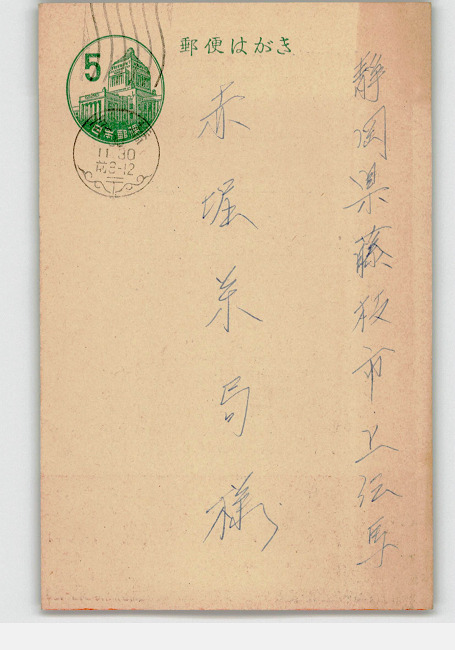 郵便はがき
5
日本郵便
11.30
前8-12
静岡県藤枝市上伝馬
赤堀米局様